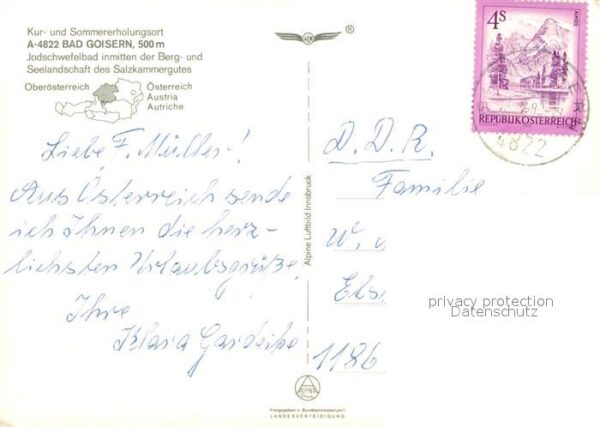 Kur- und Sommererholungsort
A-4822 BAD GOISERN, 500 m
Jodschwefelbad inmitten der Berg- und
Seelandschaft des Salzkammergutes
Oberösterreich
Österreich
Austria
Autriche
Liebe F. Müller!
Aus Österreich sende
ich Ihnen die herz-
lichsten Urlaubsgrüße.
Ihre
Klara
Alpine Luftbild Innsbruck
4S
REPUBLIK ÖSTERREICH
4822
D. D. R.
Familie
W. 
1186
privacy protection
Datenschutz
Freigegeben v. Bundesministerium f.
LANDESVERTEIDIGUNG